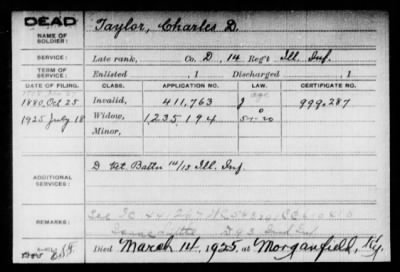 DEAD
NAME OF SOLDIER: Taylor, Charles D.
SERVICE: Late rank, Co. D, 14 Reg't Ill. Inf.
TERM OF SERVICE: Enlisted , 1 Discharged , 1
DATE OF FILING. CLASS. APPLICATION NO. LAW. CERTIFICATE NO.
1880, Oct 25 Invalid, 411,763 J 999,287
1925 July 18 Widow, 1,235,194
Minor,
ADDITIONAL SERVICES: D Ret. Battn 14/15 Ill. Inf.
REMARKS:
Died March 14, 1925, at Morganfield, Ky.